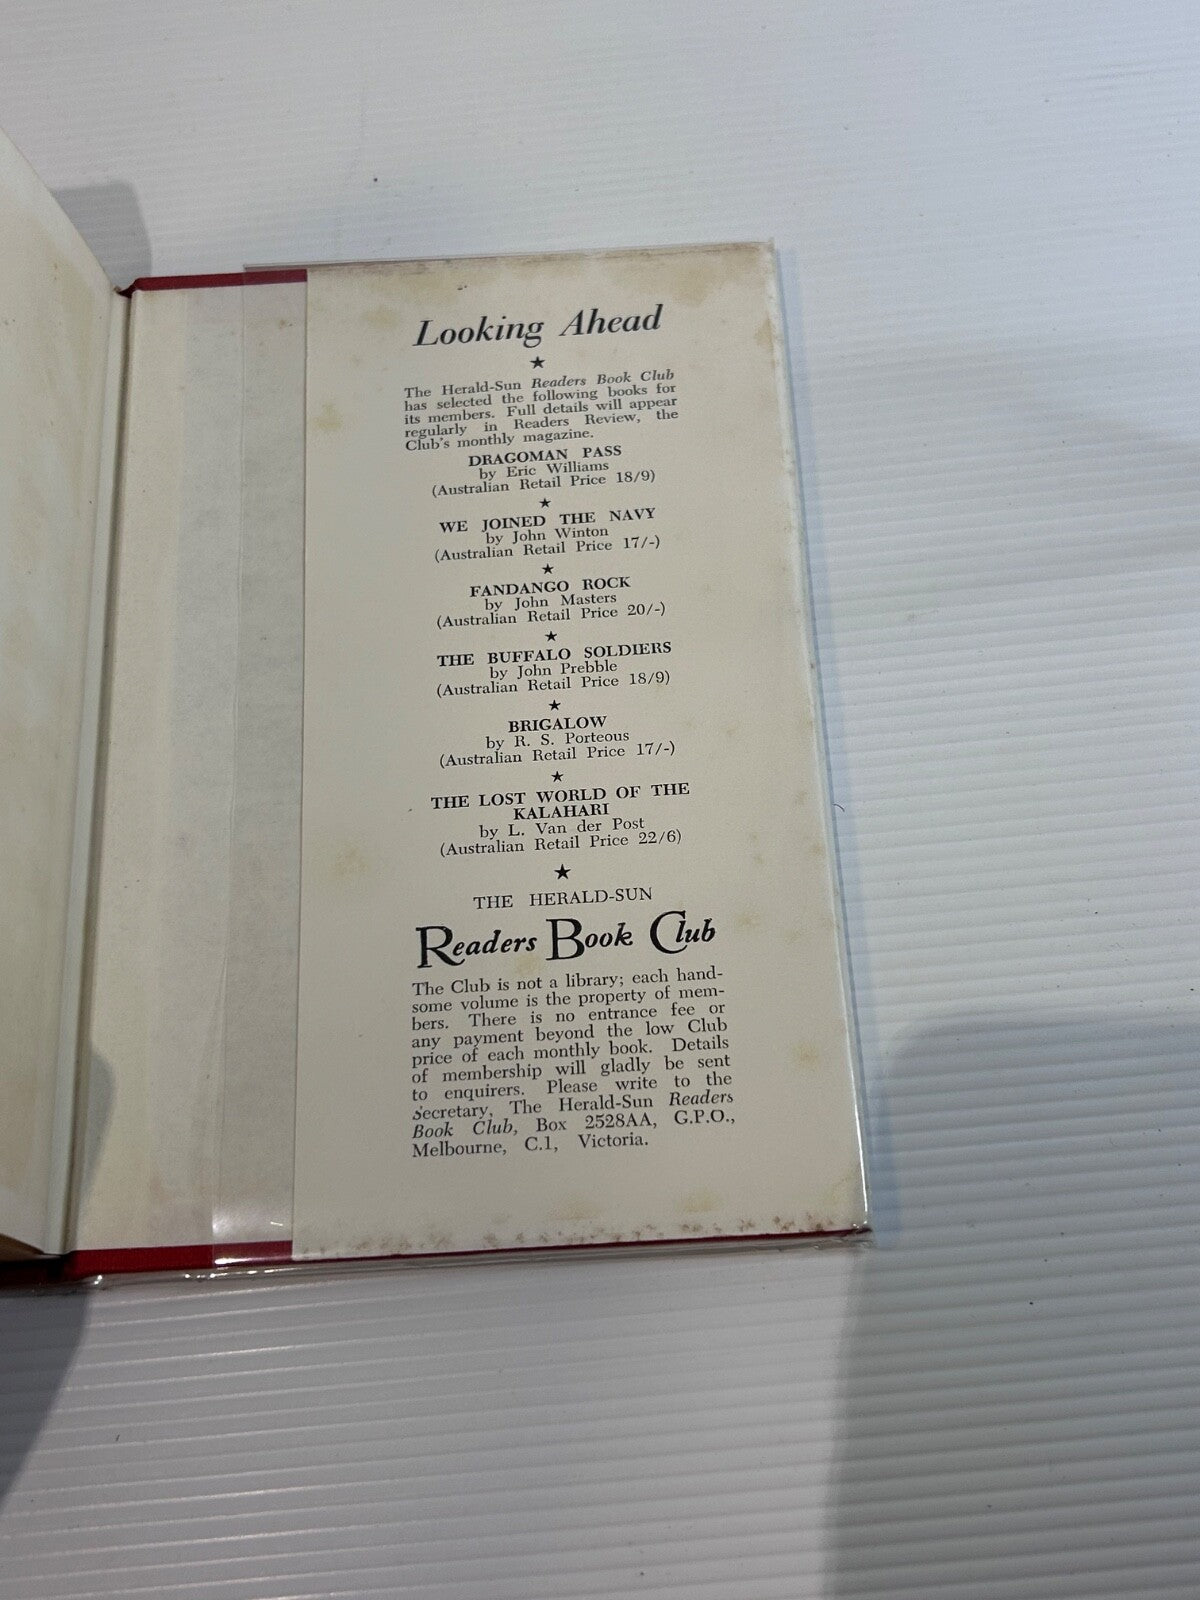 Looking Ahead
★
The Herald-Sun Readers Book Club
has selected the following books for
its members. Full details will appear
regularly in Readers Review, the
Club's monthly magazine.
DRAGOMAN PASS
by Eric Williams
(Australian Retail Price 18/9)
★
WE JOINED THE NAVY
by John Winton
(Australian Retail Price 17/-)
★
FANDANGO ROCK
by John Masters
(Australian Retail Price 20/-)
★
THE BUFFALO SOLDIERS
by John Prebble
(Australian Retail Price 18/9)
★
BRIGALOW
by R. S. Porteous
(Australian Retail Price 17/-)
★
THE LOST WORLD OF THE
KALAHARI
by L. Van der Post
(Australian Retail Price 22/6)
★
THE HERALD-SUN
Readers Book Club
The Club is not a library; each hand-
some volume is the property of mem-
bers. There is no entrance fee or
any payment beyond the low Club
price of each monthly book. Details
of membership will gladly be sent
to enquirers. Please write to the
Secretary, The Herald-Sun Readers
Book Club, Box 2528AA, G.P.O.,
Melbourne, C.1, Victoria.